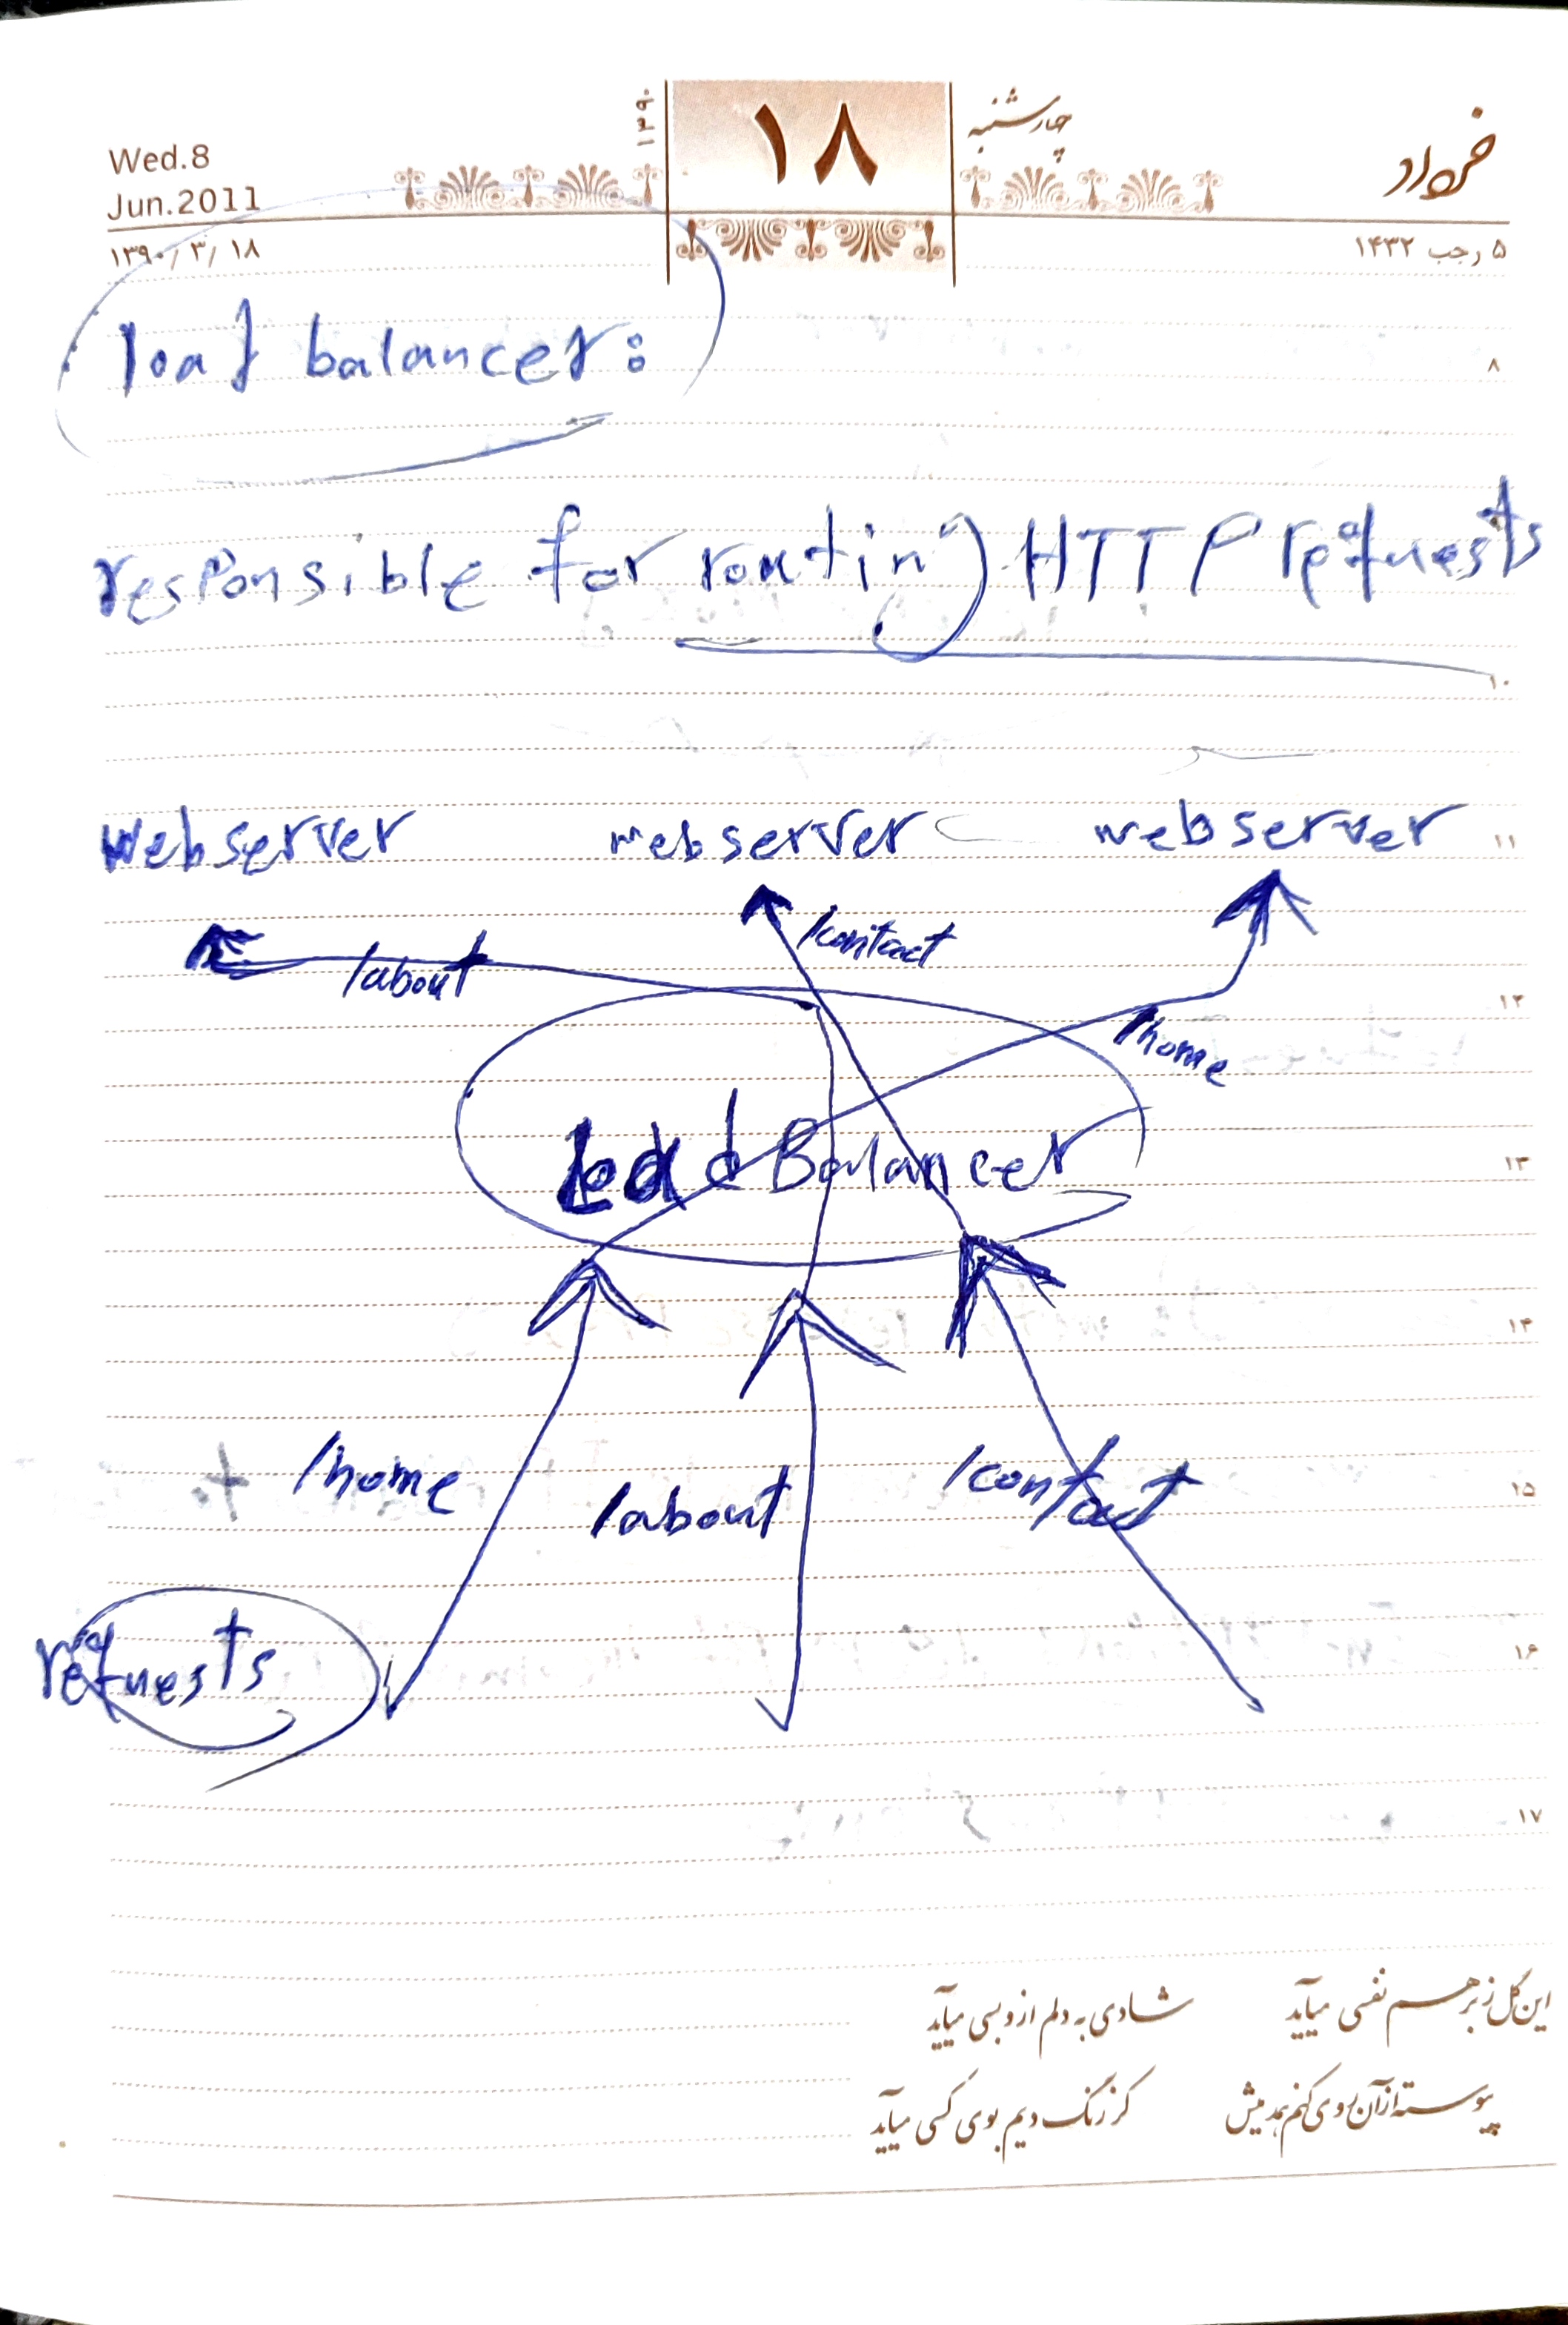 Wed.8
Jun.2011
۱۳۹۰/۳/۱۸
۱۳۹۰
۱۸
چهارشنبه
خرداد
۵ رجب ۱۴۳۲
load balancer:
۸
responsible for routing HTTP requests
۱۰
webserver webserver webserver
۱۱
/about /contact
۱۲
/home
Load Balancer
۱۳
۱۴
/home /about /contact
۱۵
requests
۱۶
۱۷
این گل ز بر هم نفسی میآید شادی به دلم از و بسی میآید
پیوسته از آن روی کنم همدمیش کز رنگ ویم بوی کسی میآید